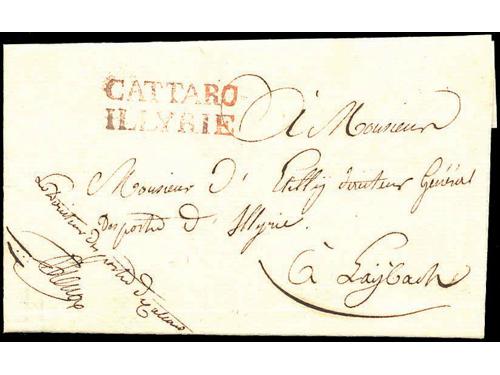 CATTARO
ILLYRIE
à Monsieur
Monsieur d' directeur Général
des postes d'Illyrie.
à Laybach
Le Directeur des postes de Cattaro